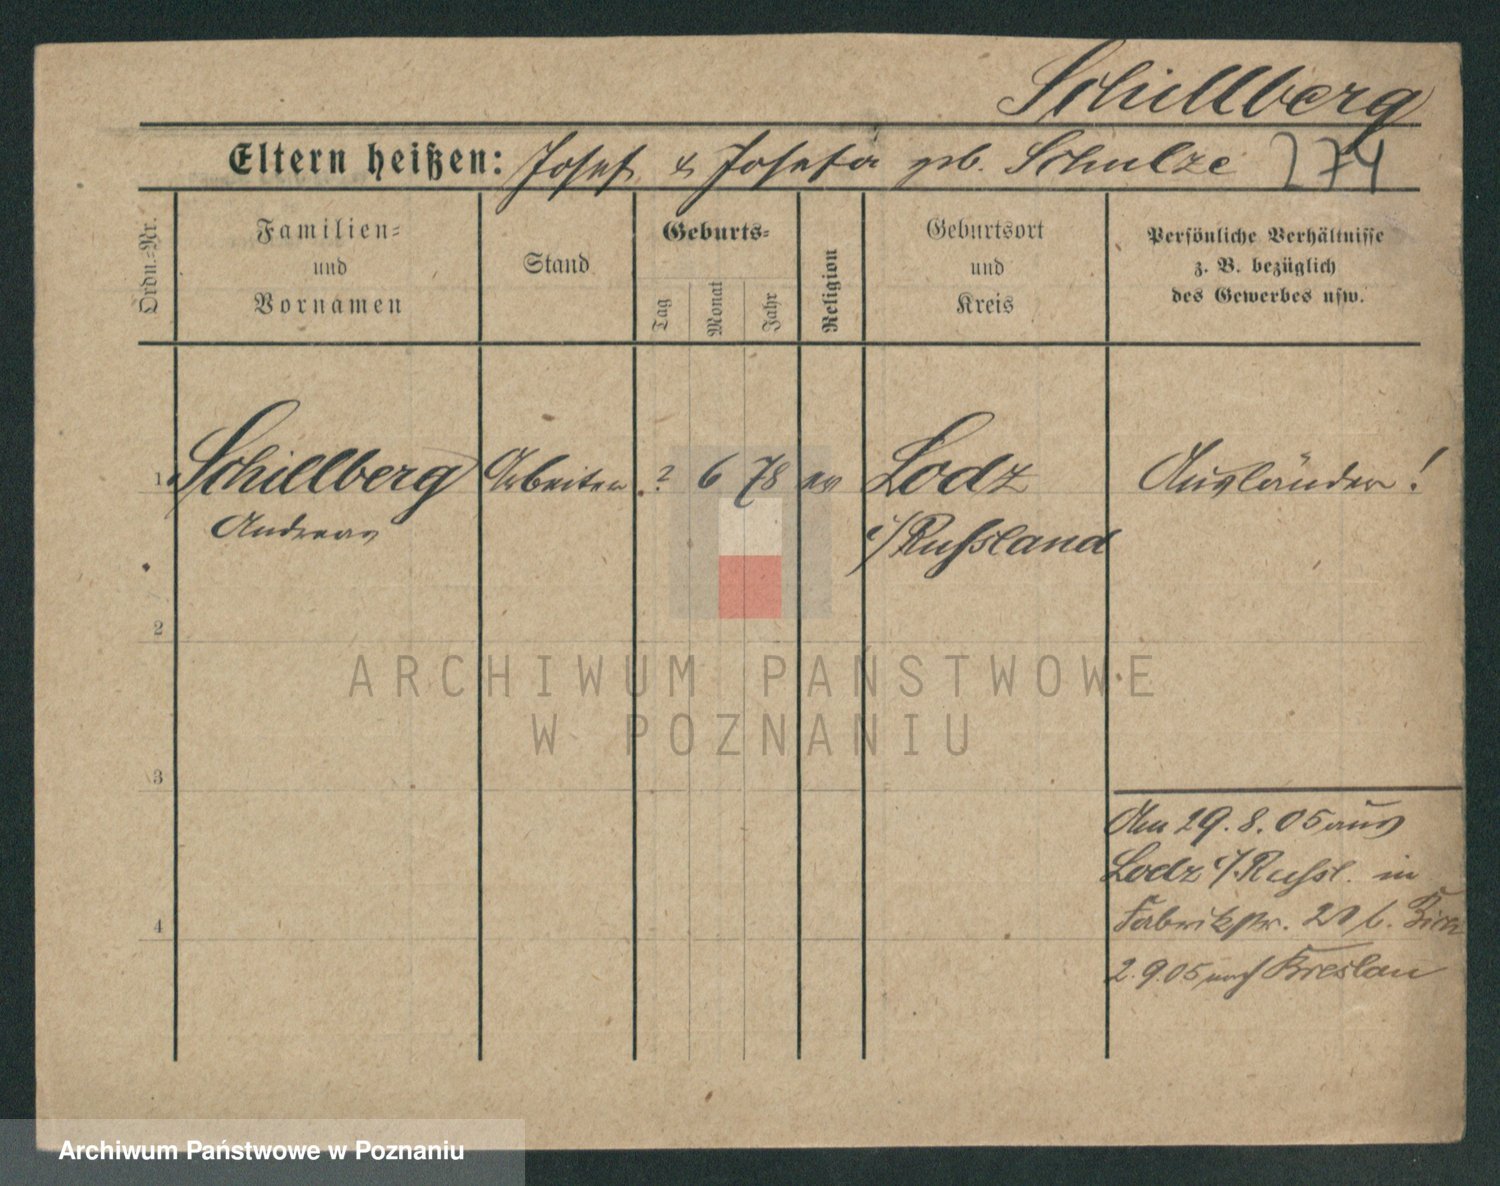 Schillberg
Eltern heißen: Josef & Josefa geb. Schulze 274
Ordn.=Nr.
Familien=
und
Vornamen
Stand
Geburts=
Tag
Monat
Jahr
Religion
Geburtsort
und
Kreis
Persönliche Verhältnisse
z. B. bezüglich
des Gewerbes usw.
1. Schillberg Arbeiter ? 6 78 ev Lodz Ausländer!
Andreas i/Russland
2
3
4
Am 29.8.05 aus
Lodz i/Russl. in
Fabrikstr. 20 b.
2.9.05 nach Breslau
ARCHIWUM PAŃSTWOWE
W POZNANIU
Archiwum Państwowe w Poznaniu